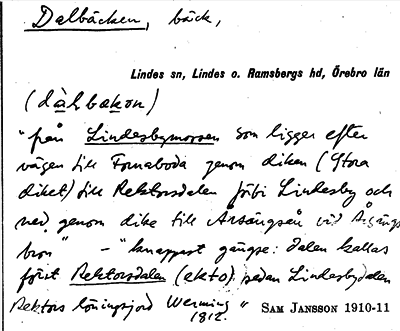 Dalbäcken, bäck,
Lindes sn, Lindes o. Ramsbergs hd, Örebro län
(dàlbäkən)
"från Lindesbymossen som ligger efter
vägen till Fornaboda genom diken (Stora
diket) till Rektorsdalen förbi Lindesby och
ned genom dike till Arsångsån vid Arsångs
bron" – "knappast gängse: dalen kallas
först Rektorsdalen (akto), sedan Lindesbydalen
Rektors löningsjord Werming 1812." SAM JANSSON 1910-11